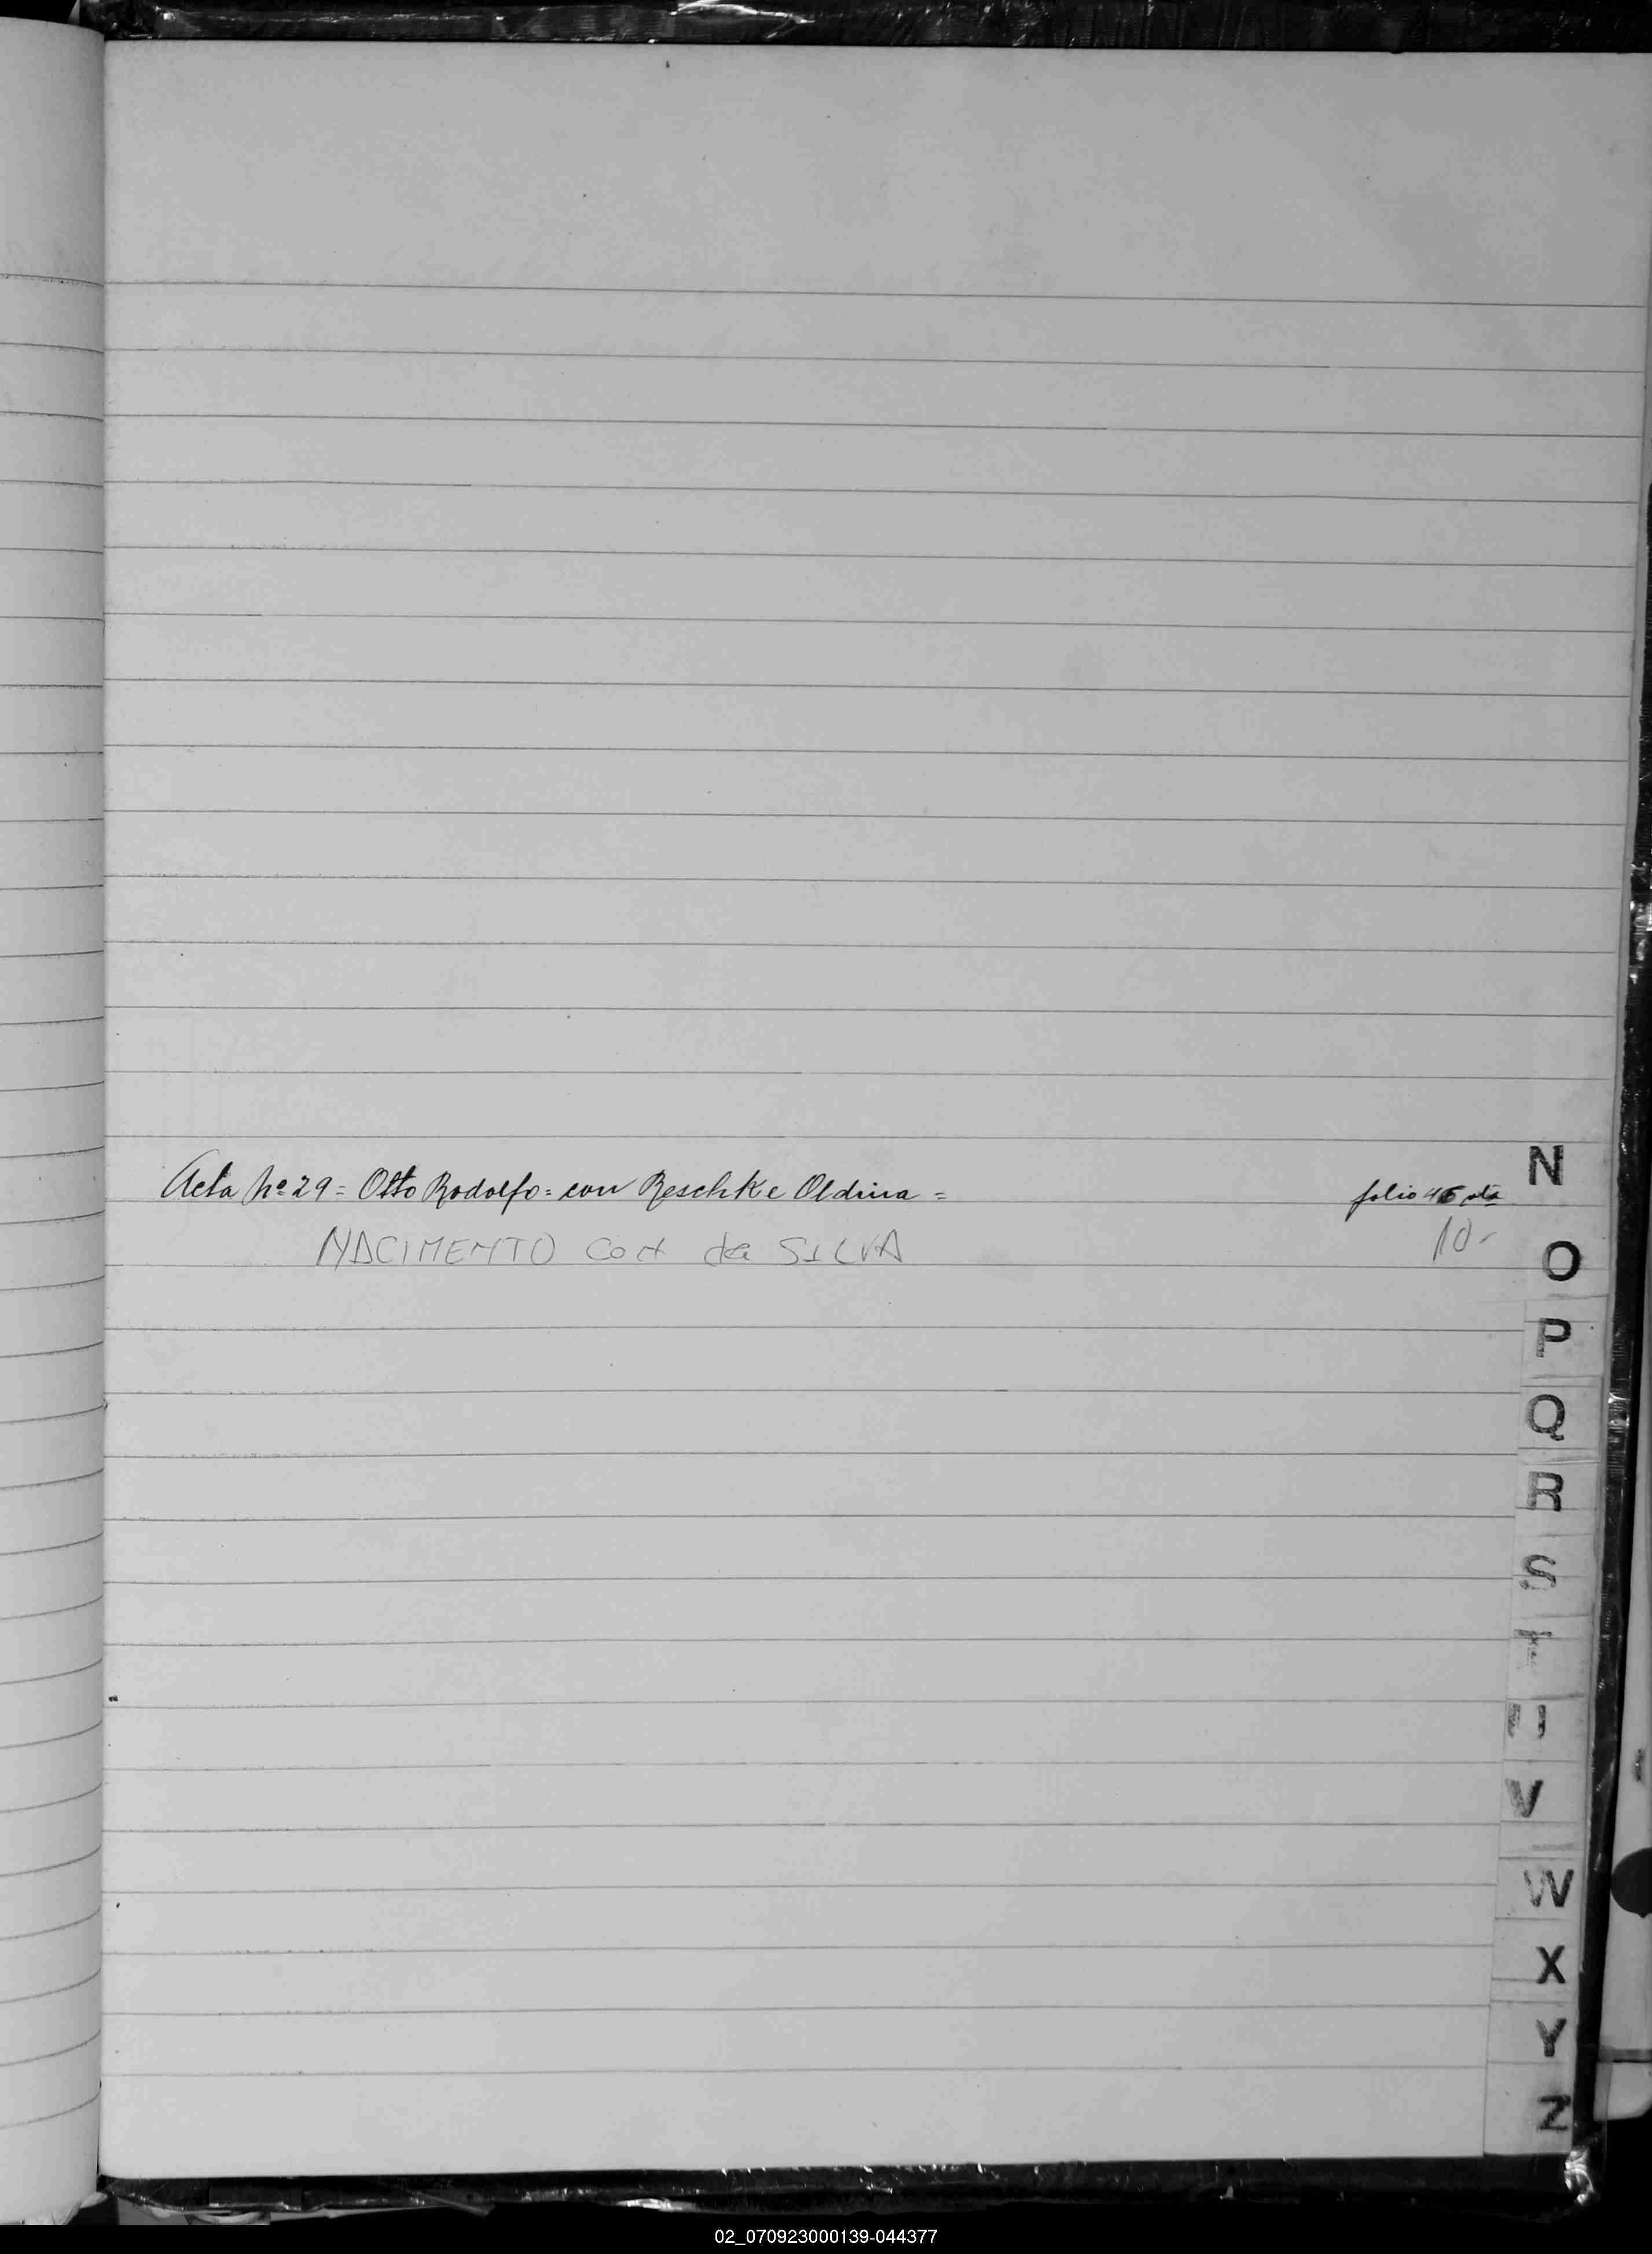 Acta Nº 29 = Otto Rodolfo = con Reschke Oldina = folio 45 vta
NACIMENTO con da SILVA 10-
N
O
P
Q
R
S
T
U
V
W
X
Y
Z
02_070923000139-044377